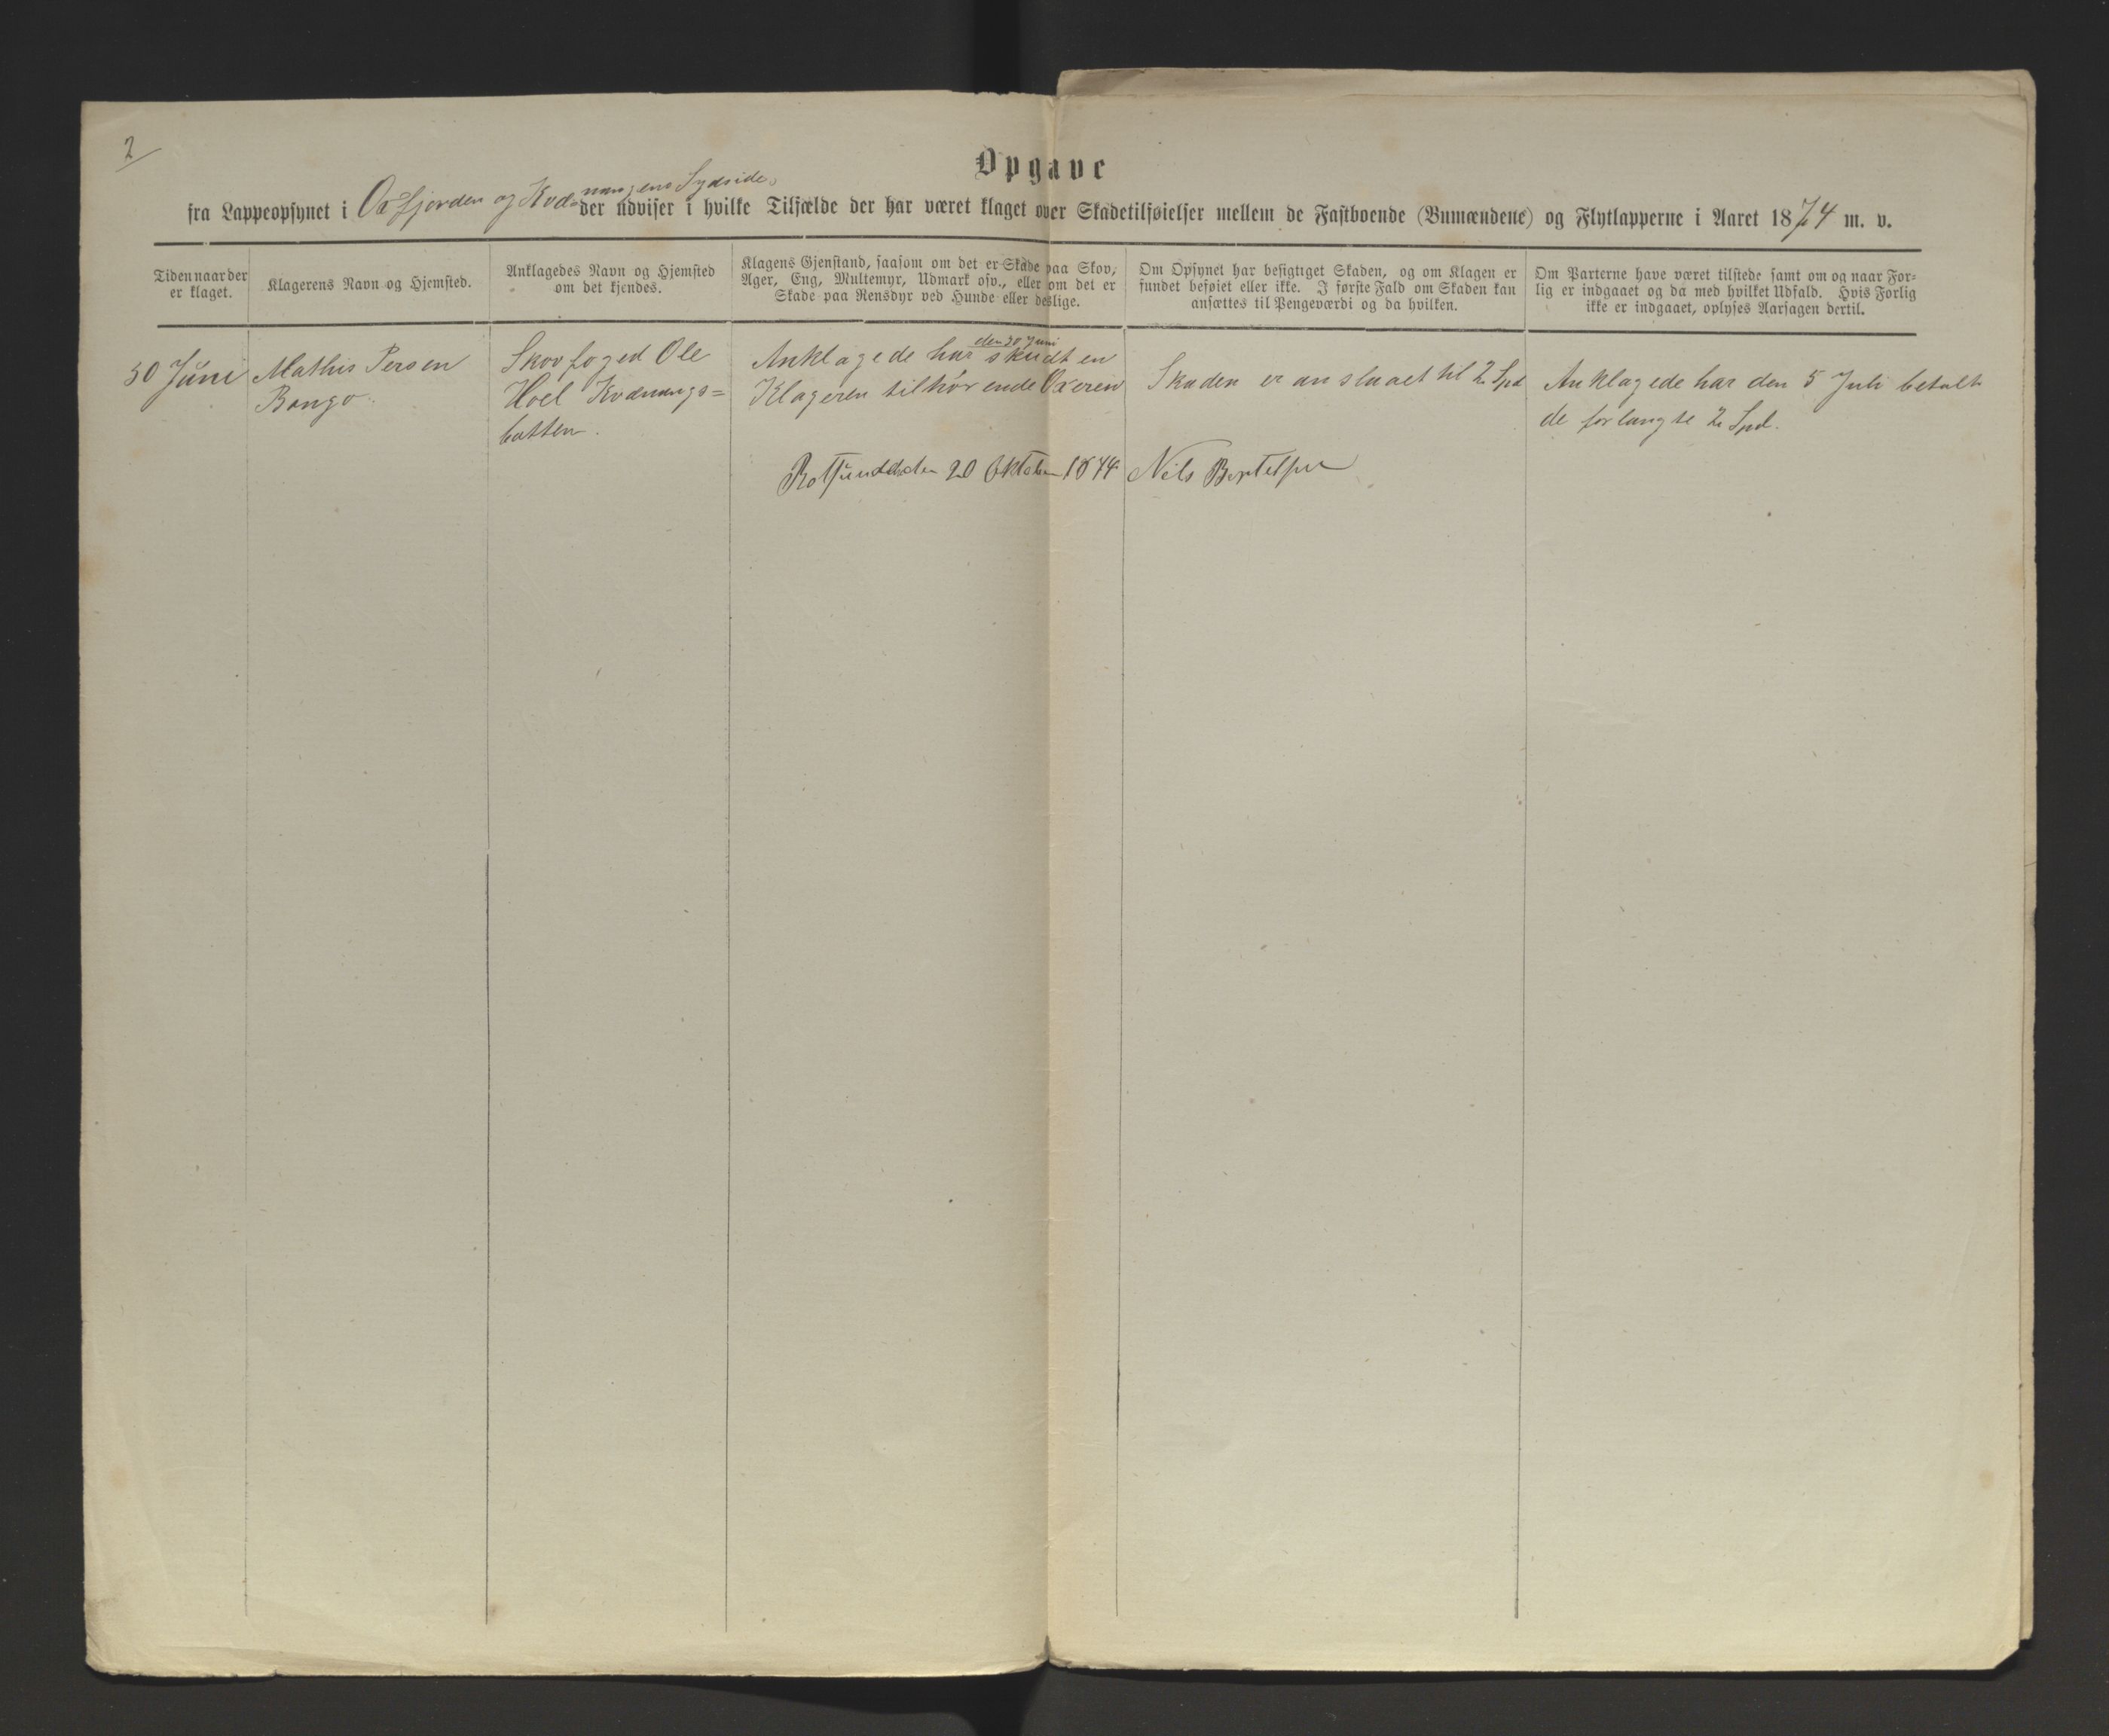 2
Opgave
nangens Sydside,
fra Lappeopsynet i Oxfjorden og Kvæ- der udviser i hvilke Tilfælde der har været klaget over Skadetilføielser mellem de Fastboende (Bumændene) og Flytlapperne i Aaret 1874 m. v.
Tiden naar der
er klaget.
Klagerens Navn og Hjemsted.
Anklagedes Navn og Hjemsted
om det kjendes.
Klagens Gjenstand, saasom om det er Skade paa Skov,
Ager, Eng, Multemyr, Udmark osv., eller om det er
Skade paa Rensdyr ved Hunde eller deslige.
Om Opsynet har besigtiget Skaden, og om Klagen er
fundet beføiet eller ikke. I første Fald om Skaden kan
ansættes til Pengeværdi og da hvilken.
Om Parterne have været tilstede samt om og naar For-
lig er indgaaet og da med hvilket Udfald. Hvis Forlig
ikke er indgaaet, oplyses Aarsagen dertil.
30 Juni
Mathis Persen
Bongo.
Skovfoged Ole
Hoel Kvænangs=
botten.
den 30 Juni
Anklagede har skudt en
Klageren tilhørende Oxeren
Skaden er anslaaet til 2 Spd
Anklagede har den 5 Juli betalt
de forlangte 2 Spd.
Rotsund den 20 Oktober 1874 Nils Bertelsen